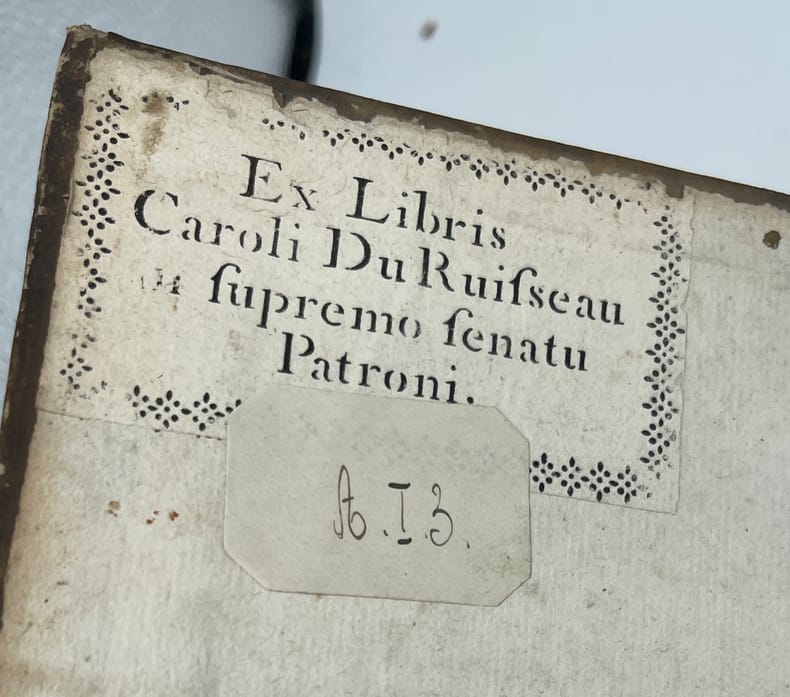 Ex Libris
Caroli Du Ruiſseau
ſupremo ſenatu
Patroni.
A.I.3.